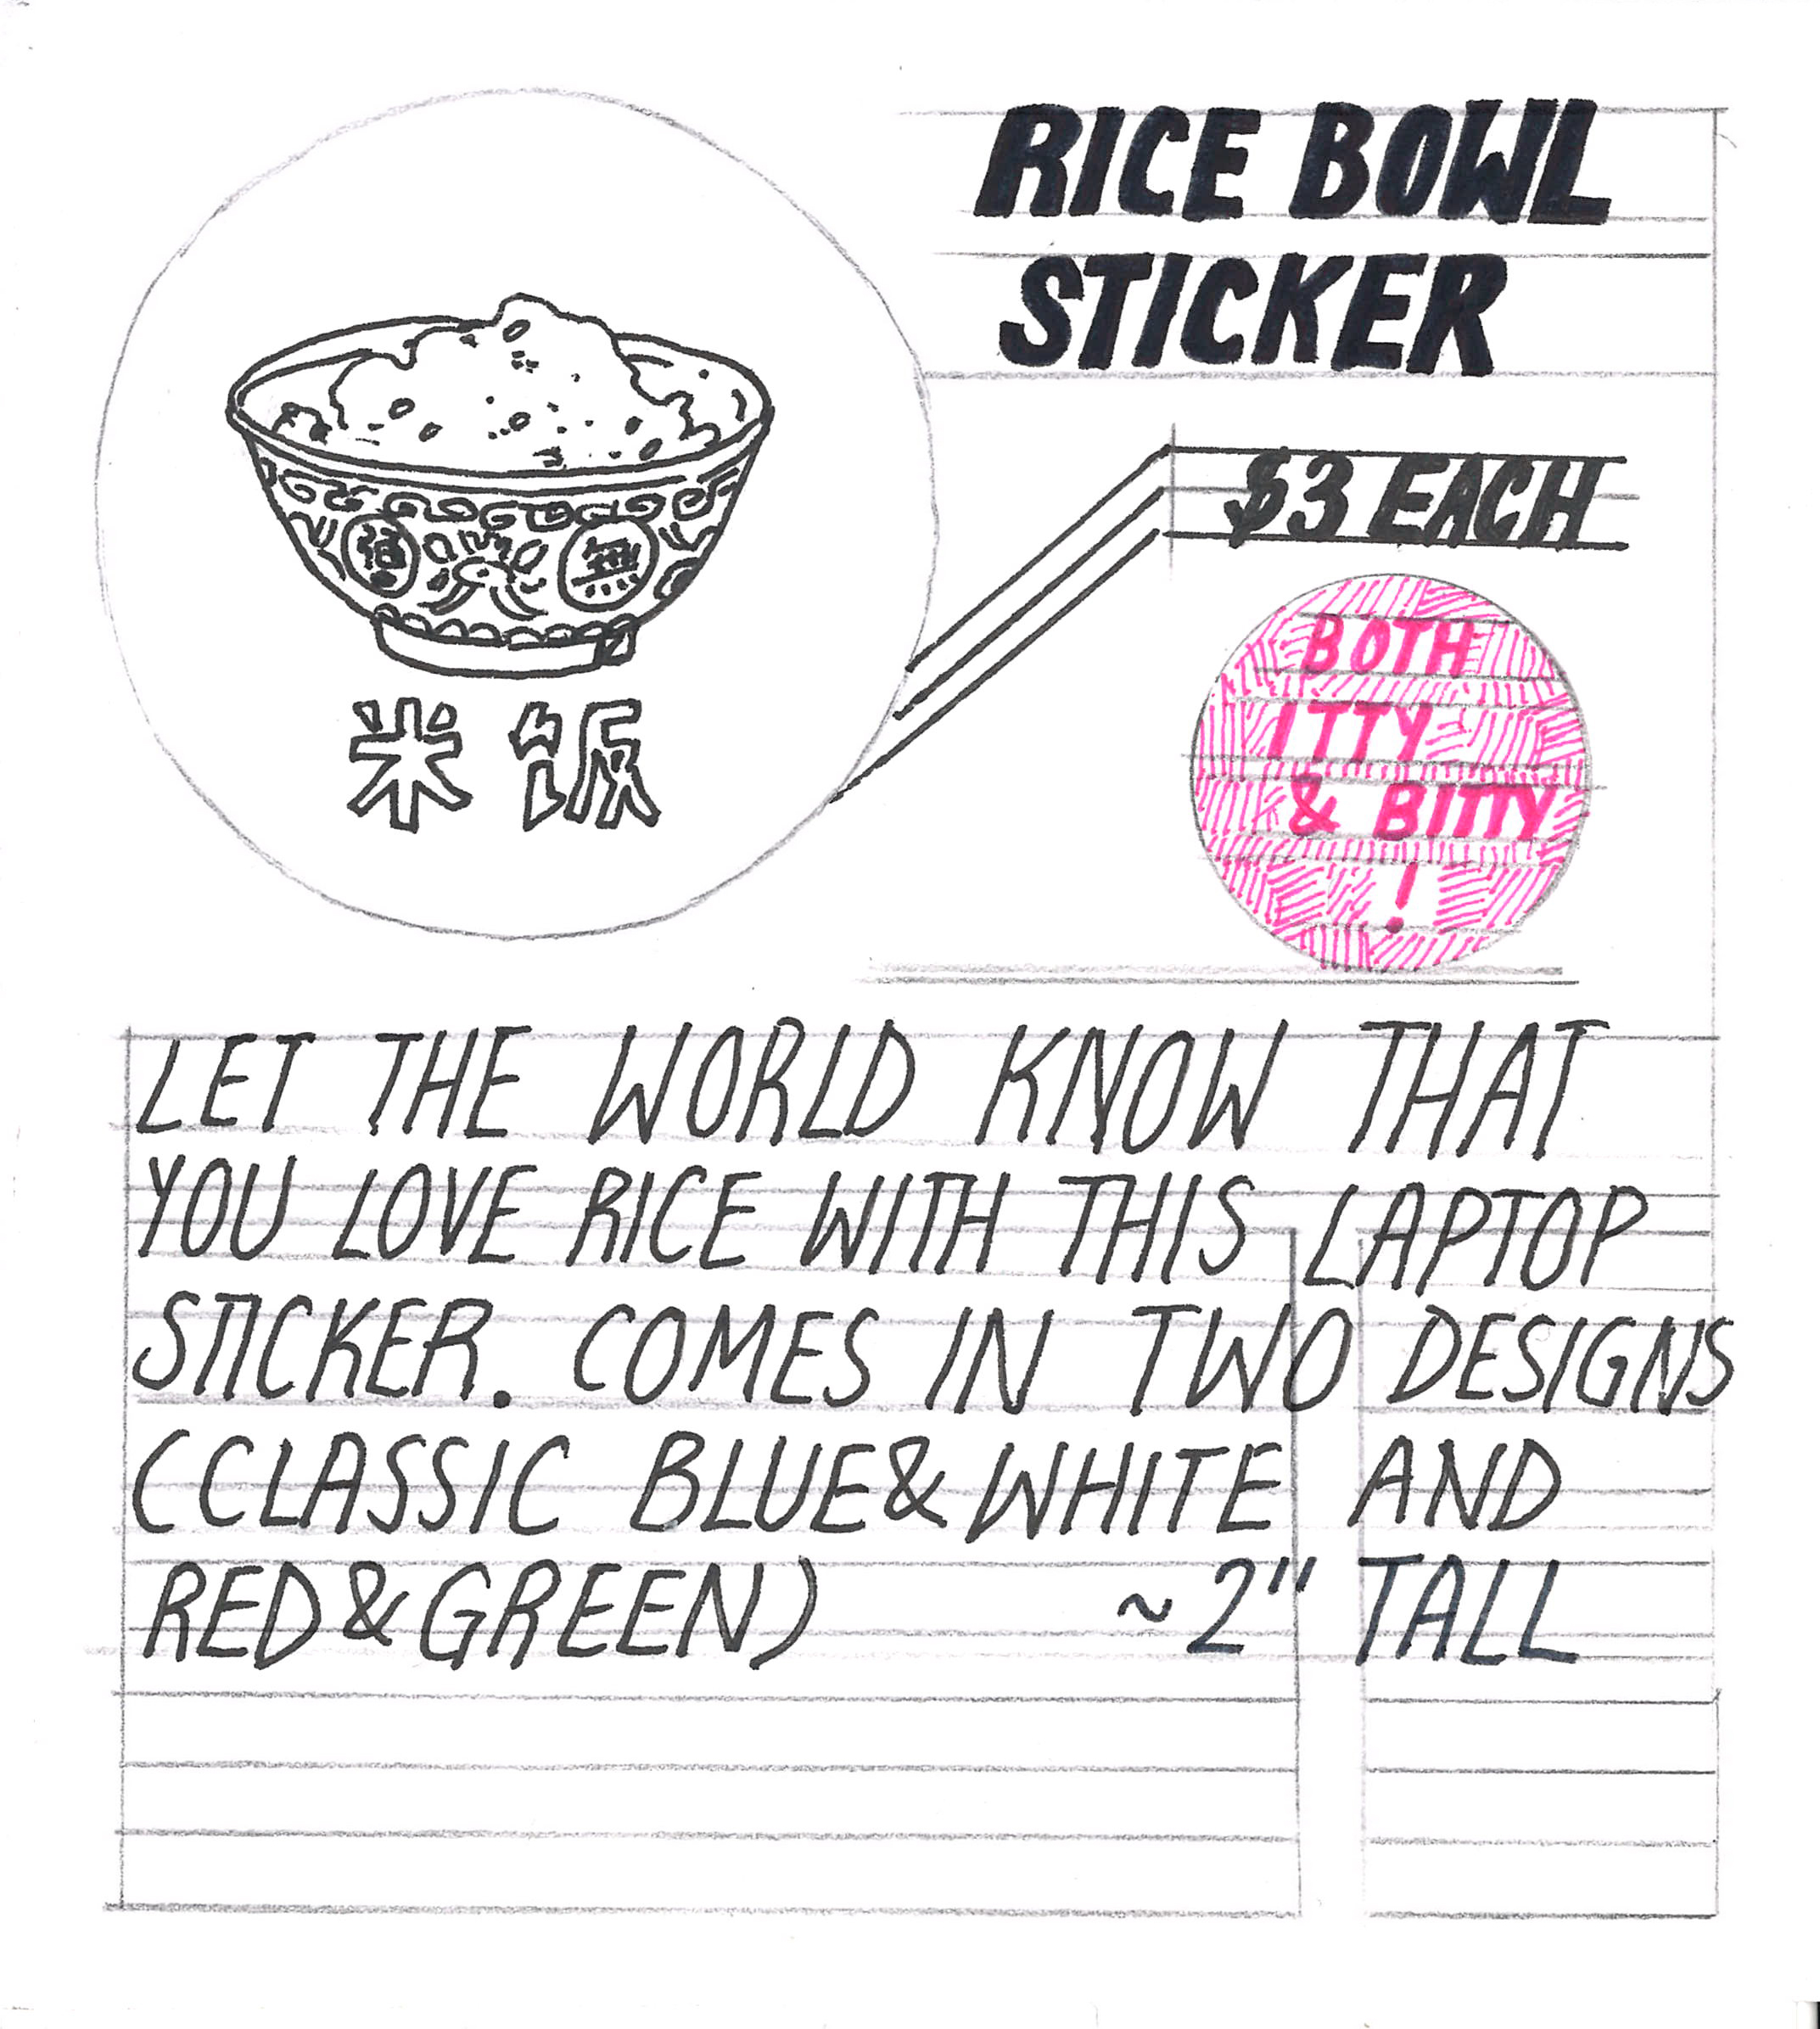 RICE BOWL
STICKER
$3 EACH
BOTH
ITTY
& BITTY
!
無
米飯
LET THE WORLD KNOW THAT
YOU LOVE RICE WITH THIS LAPTOP
STICKER. COMES IN TWO DESIGNS
(CLASSIC BLUE&WHITE AND
RED&GREEN) ~2" TALL